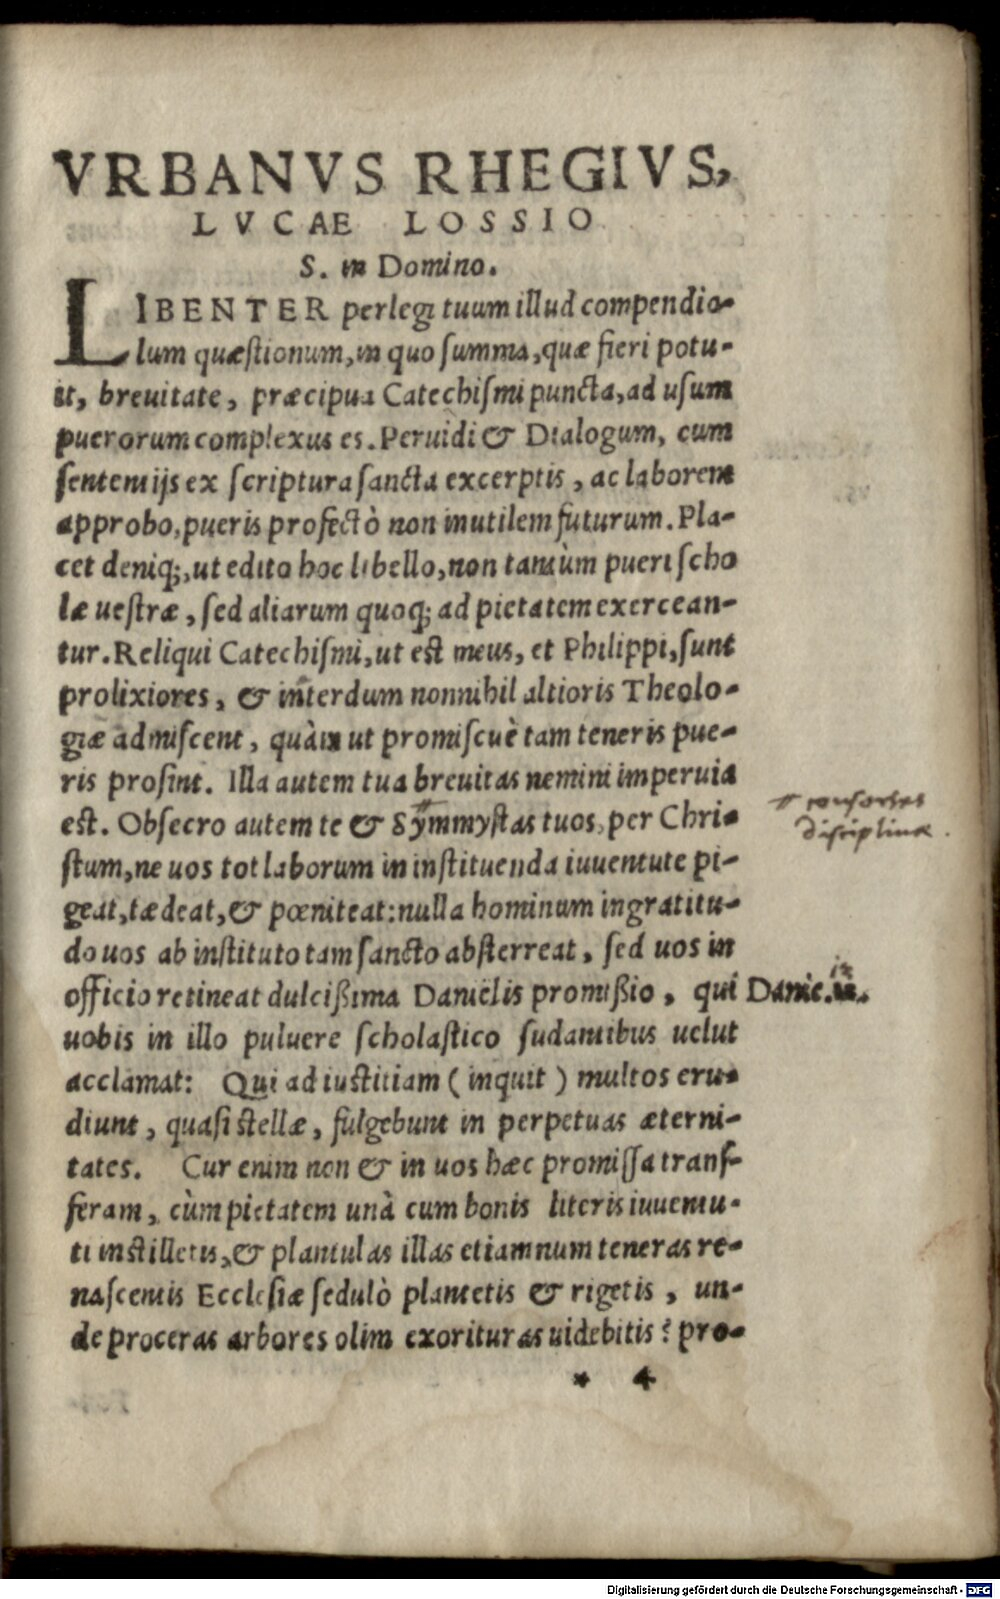 VRBANVS RHEGIVS,
LVCAE LOSSIO
S. in Domino.
LIBENTER perlegi tuum illud compendio-
lum quæstionum, in quo summa, quæ fieri potu-
it, breuitate, præcipua Catechiſmi puncta, ad uſum
puerorum complexus es. Peruidi & Dialogum, cum
ſententijs ex ſcriptura ſancta excerptis, ac laborem
approbo, pueris profectò non inutilem futurum. Pla-
cet deniq;, ut edito hoc libello, non tantùm pueri ſcho
læ ueſtræ, ſed aliarum quoq; ad pietatem exercean-
tur. Reliqui Catechiſmi, ut est meus, et Philippi, ſunt
prolixiores, & interdum nonnihil altioris Theolo-
giæ admiſcent, quàm ut promiſcuè tam teneris pue-
ris proſint. Illa autem tua breuitas nemini imperuia
est. Obſecro autem te & Symmyſtas tuos, per Chri-
ſtum, ne uos tot laborum in inſtituenda iuuentute pi-
geat, tædeat, & pœniteat: nulla hominum ingratitu-
do uos ab inſtituto tam ſancto abſterreat, ſed uos in
officio retineat dulcißima Danielis promißio, qui
uobis in illo puluere ſcholaſtico ſudantibus uelut
acclamat: Qui ad iustitiam (inquit) multos eru-
diunt, quaſi stellæ, fulgebunt in perpetuas æterni-
tates. Cur enim non & in uos hæc promiſſa tranſ-
feram, cùm pietatem unà cum bonis literis iuuentu-
ti instilletis, & plantulas illas etiamnum teneras re-
naſcentis Eccleſiæ ſedulò plantetis & rigetis, un-
de proceras arbores olim exorituras uidebitis? pro-
* 4
# consortes
disciplinæ.
12
Danie.
Digitalisierung gefördert durch die Deutsche Forschungsgemeinschaft - DFG